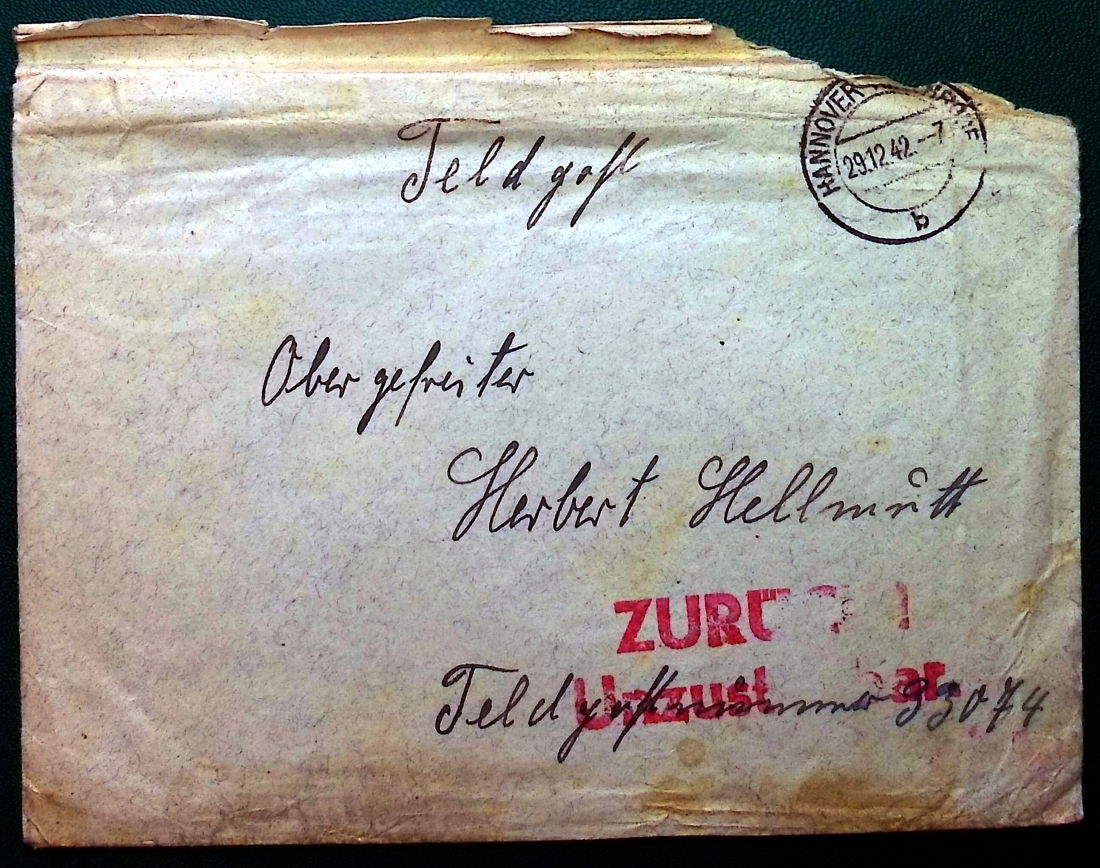 Feldpost
HANNOVER
29.12.42.-7
b
Obergefreiter
Herbert Hellmutt
ZURÜ
Feldpostnummer 33074